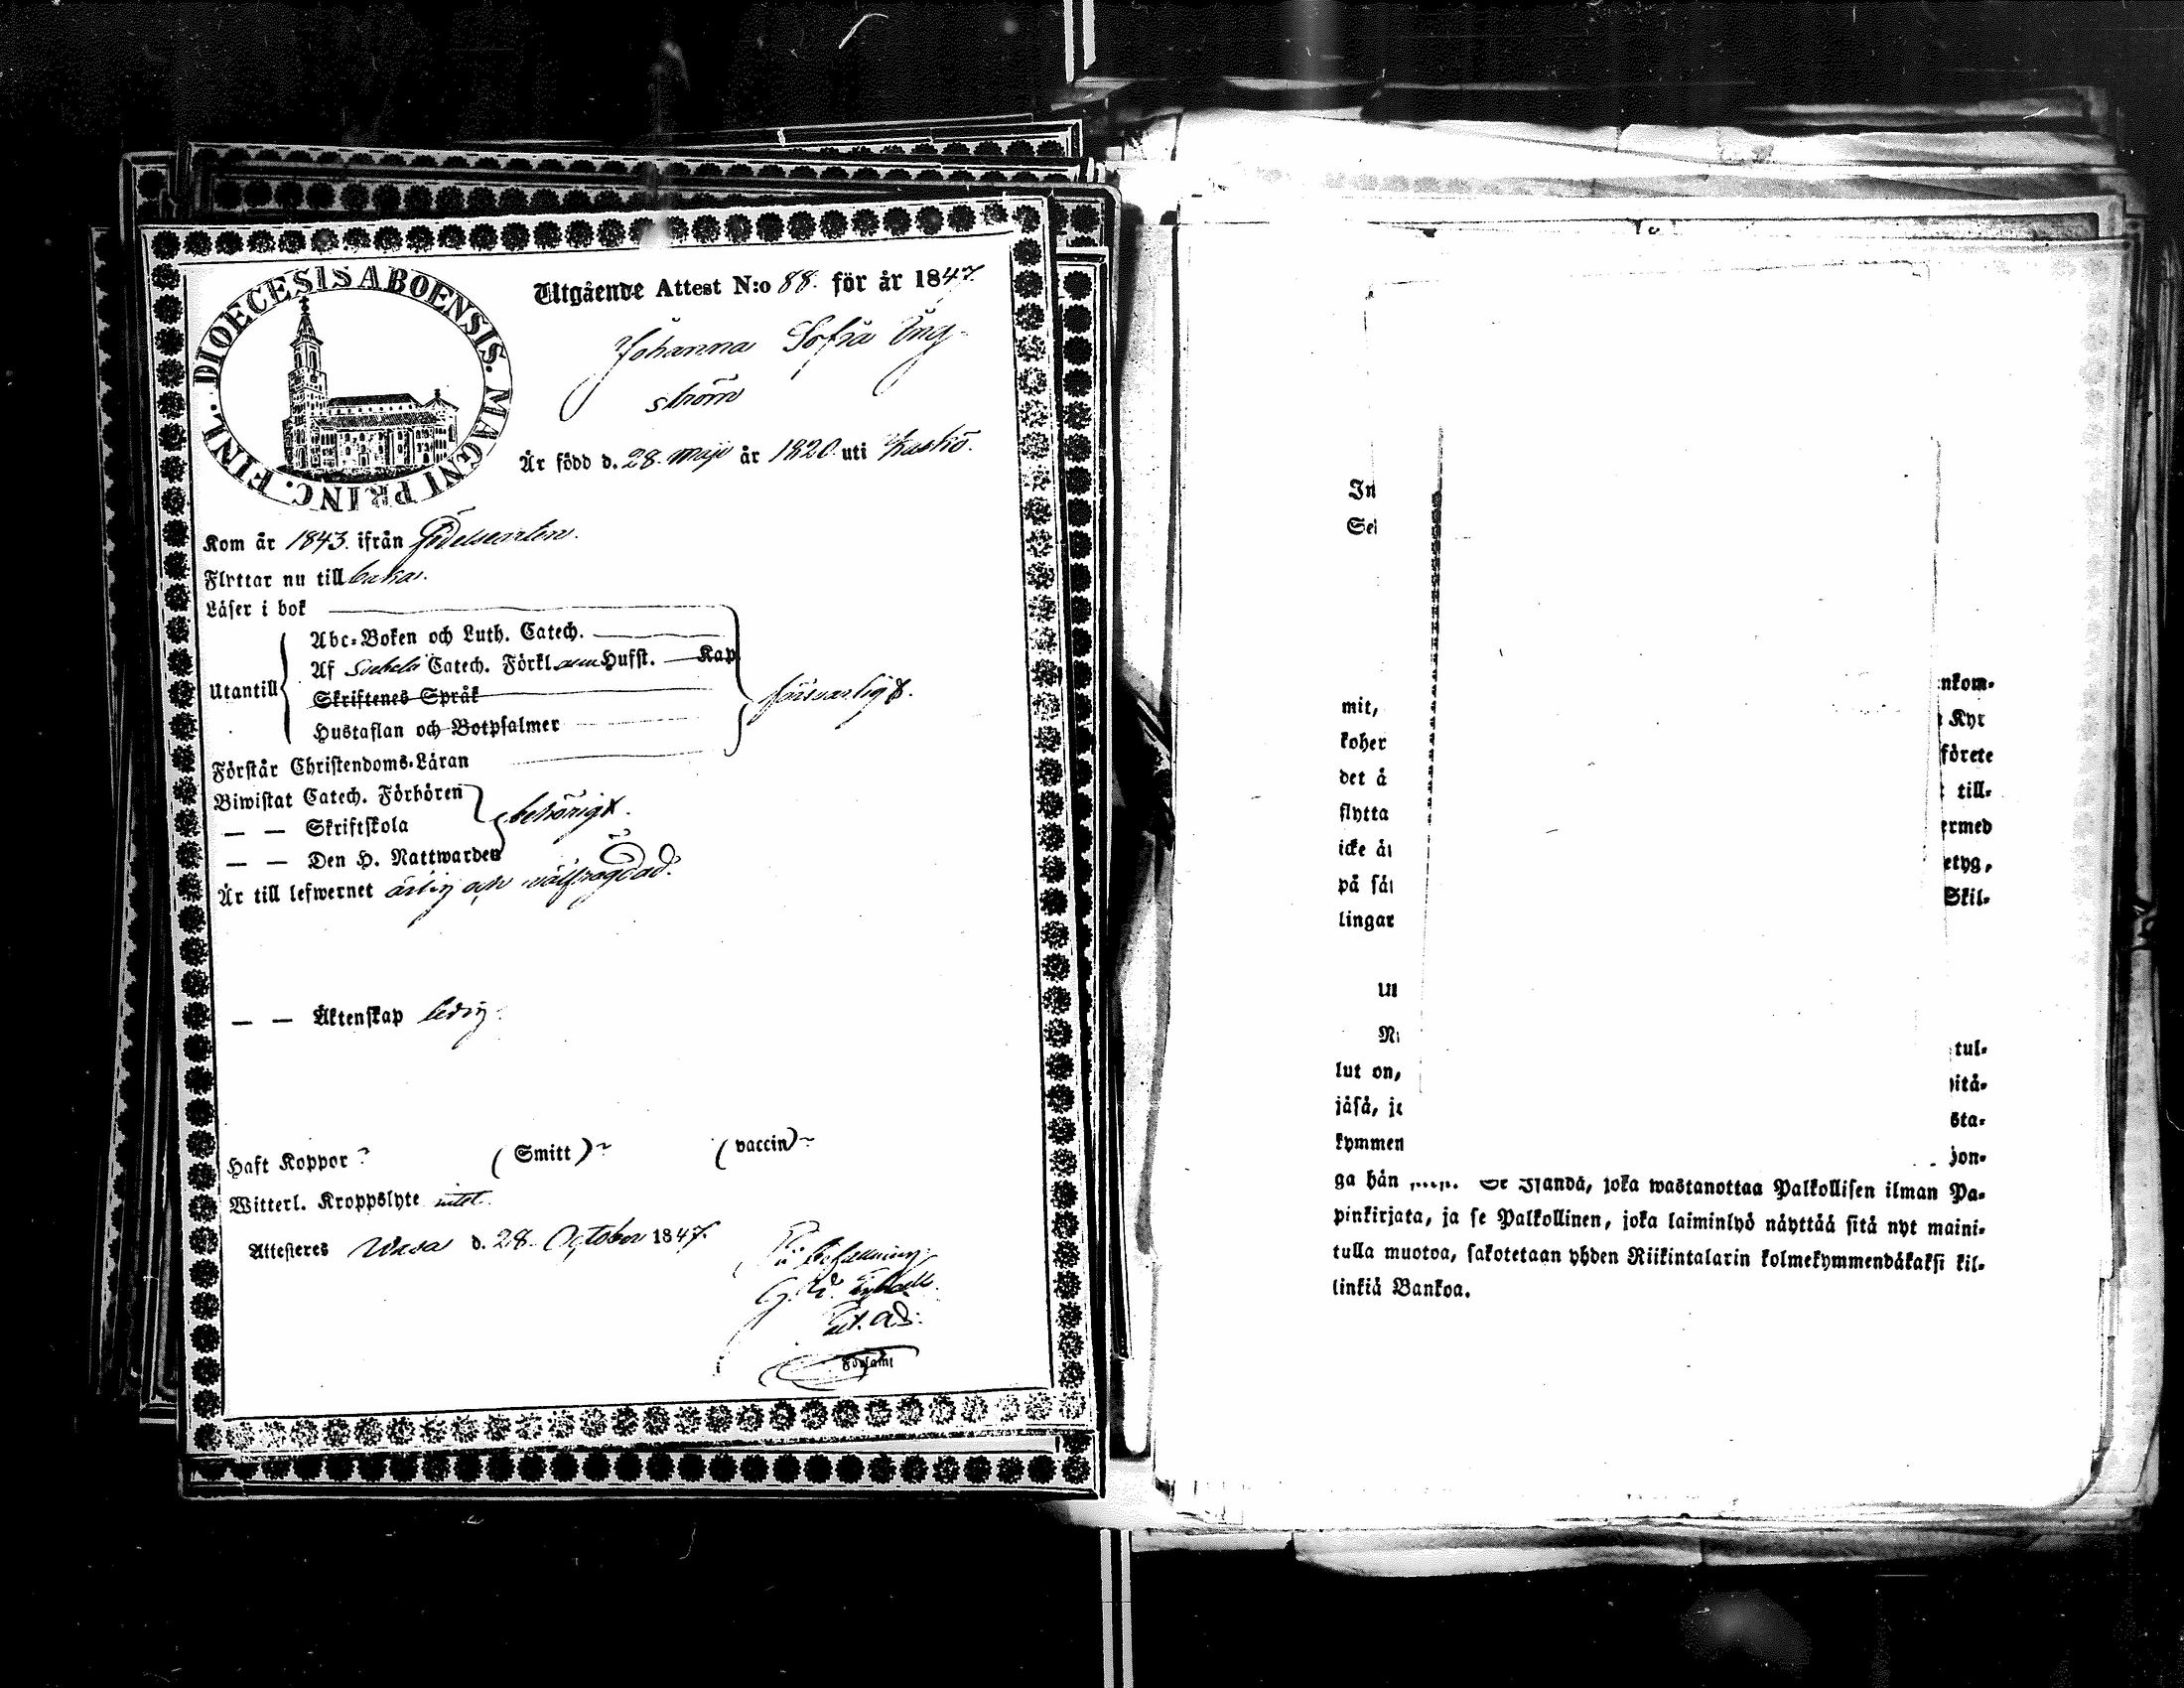 DIOECESIS ABOENSIS. MAGNI PRINC. FINL.
Utgående Attest N:o 88. för år 1847.
Johanna Sofia Eng-
ström
Är född d. 28. Maji år 1820. uti Kaskö.
Kom år 1843. ifrån födelseorten.
Flyttar nu till baka.
Läser i bok
Utantill
Abc-Boken och Luth. Catech.
Af Svebelii Catech. Förkl. Hufst. Kap.
Skriftenes Språk
Hustaflan och Botpsalmer
försvarligt.
Förstår Christendoms-Läran
Biwistat Catech. Förhören
— — Skriftskola
— — Den H. Nattwarden
behörigt.
Är till lefwernet ärlig och välfrägdad.
— — Äktenskap ledig.
Haft Koppor ? (Smitt) ~ (vaccin) ~
Witterl. Kroppslyte intet.
Attesteres Wasa d. 28. October 1847.
På befallning:
Förſamt
In
Sei
mit,
nkom-
koher
Kyr
det å
förete
flytta
till-
icke
ermed
på få
etyg,
lingar
Skil-
tul-
lut on,
itå-
jåſå, je
sta-
kymmen
jon-
ga hån Se Iſåndå, joka waſtanottaa Palkolliſen ilman Pa-
pinkirjata, ja ſe Palkollinen, joka laiminlyö nåyttåå ſitå nyt maini-
tulla muotoa, ſakotetaan yhden Riikintalarin kolmekymmendåkakſi kil-
linkiå Bankoa.